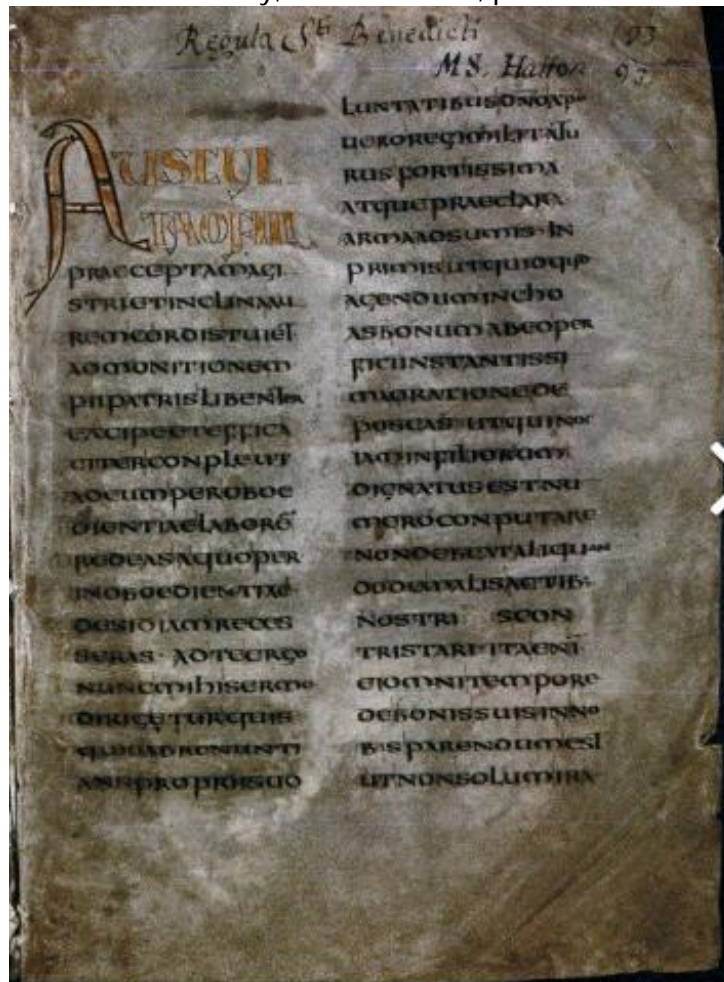 Regula Sti Benedicti
MS. Hatton 93
AUSCUL
TAOFILI
PRAECEPTAMAGI
STRIETINCLINAAU
REMCORDISTUIET
ADMONITIONEM
PIIPATRISLIBENTER
EXCIPEETEFFICA
CITERCONPLEUT
ADEUMPEROBOE
DIENTIAELABORE
REDEASAQUOPER
INOBOEDIENTIAE
DESIDIAMRECES
SERAS · ADTEERGO
NUNCMIHISERMO
DIRIGETURQUIS
ABRENUNTI
ANSPROPRIISUO
LUNTATIBUSDNOXPO
UEROREGIMILITATU
RUSFORTISSIMA
ATQUEPRAECLARA
ARMAADSUMIS·IN
PRIMISUTQUIDQUID
AGENDUMINCHO
ASBONUMABEOPER
FICIINSTANTISSI
MAORATIONEDE
POSCAS·UTQUINOS
IAMINFILIORUM
DIGNATUSESTNU
MEROCONPUTARE
NONDEBEATALIQUAN
DODEMALISACTIB·
NOSTRI SCON
TRISTARI·ITAENI
EIOMNITEMPORE
DEBONISSUISINNO
BISPARENDUMEST
UTNONSOLUMIRA